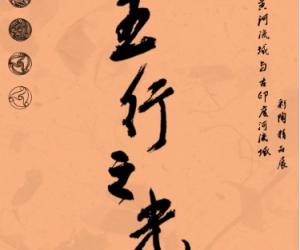 五行之光
黄河流域与古印度河流域
彩陶精品展